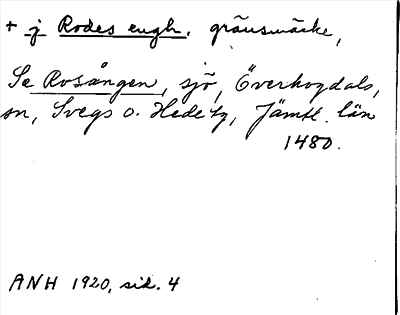 + j Rodes engh. gränsmärke,
Se Rosången, sjö, Överhogdals,
sn, Svegs o. Hede tg, Jämtl. län
1480.
ANH 1920, sid. 4